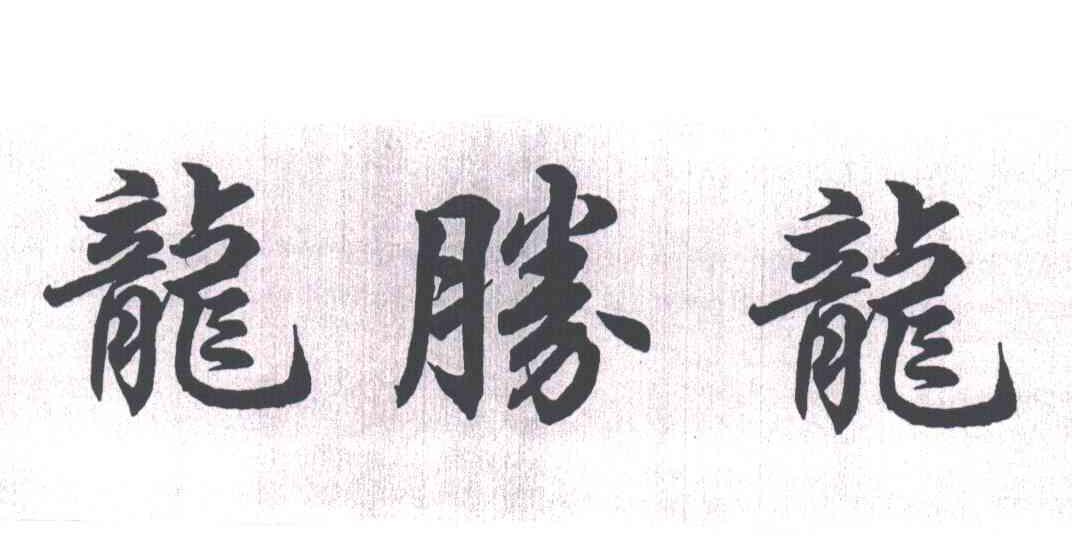 龍勝龍